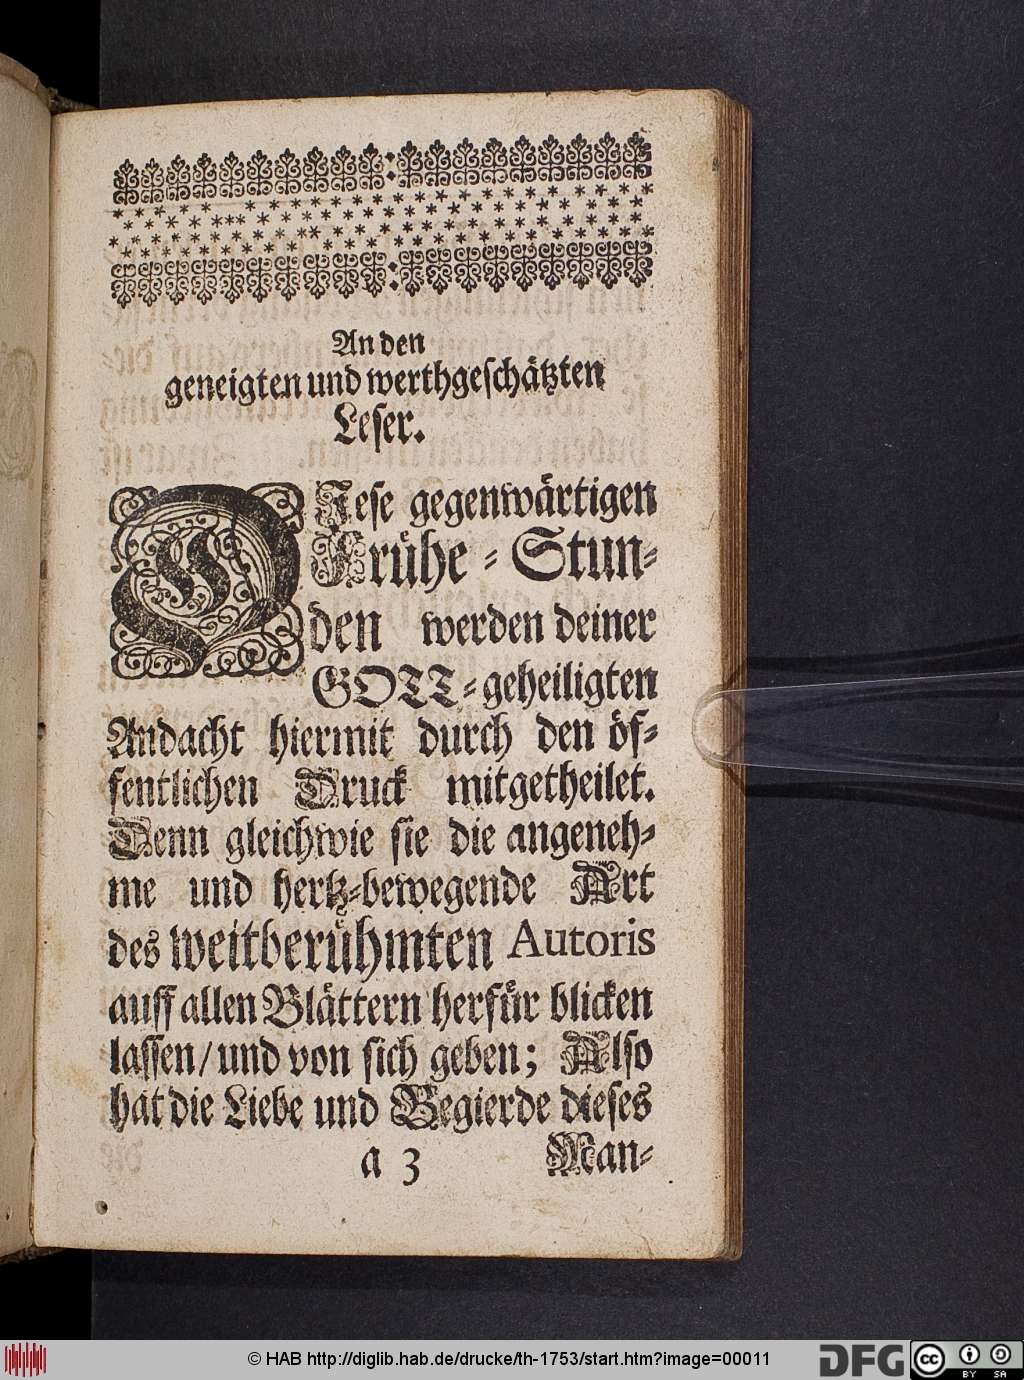 An den
geneigten und werthgeschätzten
Leser.
DIese gegenwärtigen
Frühe-Stun-
den werden deiner
GOTT-geheiligten
Andacht hiermit durch den öf-
fentlichen Druck mitgetheilet.
Denn gleichwie sie die angeneh-
me und hertz-bewegende Art
des weitberühmten Autoris
auff allen Blättern herfür blicken
lassen/und von sich geben; Also
hat die Liebe und Begierde dieses
a 3 Man-
© HAB http://diglib.hab.de/drucke/th-1753/start.htm?image=00011
DFG
cc BY SA